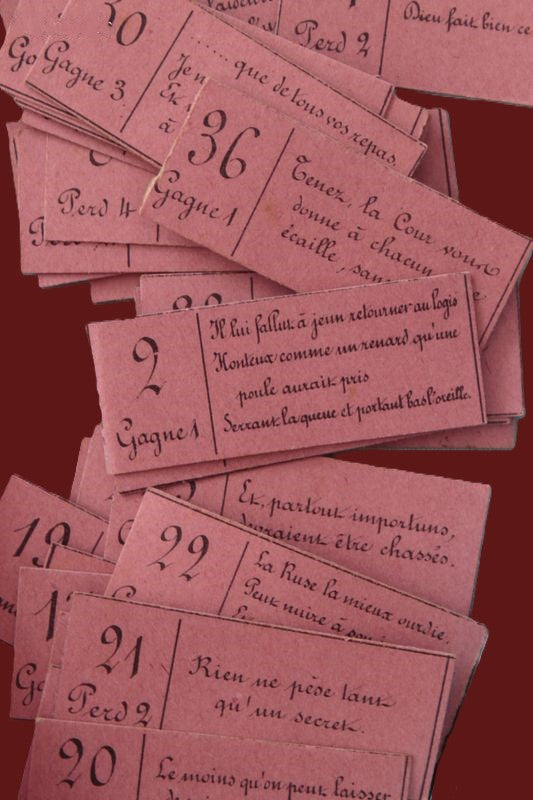 Perd 2
Dieu fait bien ce
30
Gagne 3
Go
..... que de tous vos repas.
Je n
Et
à
36
Gagne 1
Tenez, la Cour vous
donne à chacun
écaille, sans
Perd 4
2
Gagne 1
Il lui fallut à jeun retourner au logis
Honteux comme un renard qu'une
poule aurait pris
Serrant la queue et portant bas l'oreille.
Et, partout importuns,
devraient être chassés.
19
22
La Ruse la mieux ourdie,
Peut nuire à son
21
Perd 2
Rien ne pèse tant
qu'un secret.
20
Le moins qu'on peut laisser